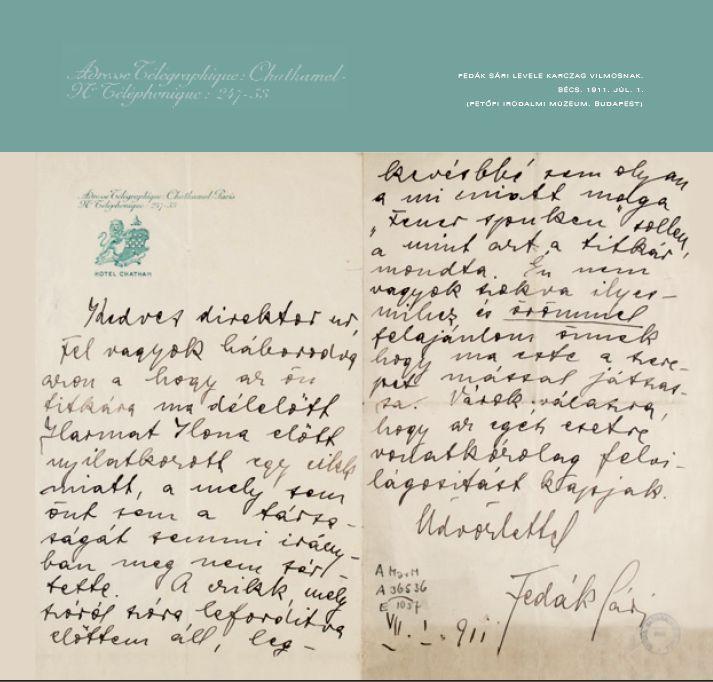 Adresse Télégraphique: Chathamel-
No Téléphonique: 247-53
FEDÁK SÁRI LEVELE KARCZAG VILMOSNAK.
BÉCS. 1911. JÚL. 1.
(PETŐFI IRODALMI MÚZEUM. BUDAPEST)
Adresse Télégraphique: Chathamel-Paris
No Téléphonique: 247-53
HOTEL CHATHAM
Kedves direktor úr,
Fel vagyok háborodva
azon a hogy az ön
titkára ma délelőtt
Harmat Ilona előtt
nyilatkozott egy cikk
miatt, a mely sem
önt sem a társa-
ságát semmi irány-
ban meg nem sér-
tette. A czikk mely
szóról szóra lefordítva
előttem áll, leg-
kevésbbé sem olyan
a mi miatt maga
„Feuer spucken" sollen,
a mint azt a titkár
mondta. Én nem
vagyok szokva ilyes-
mihez és örömmel
felajánlom önnek
hogy ma este a szere-
pét mással játszas-
sa. Várok válaszra,
hogy az egész esetre
vonatkozólag felvi-
lágosítást kapjak.
Üdvözlettel
Fedák Sári
A 36536
E 1037
VII. I. 911